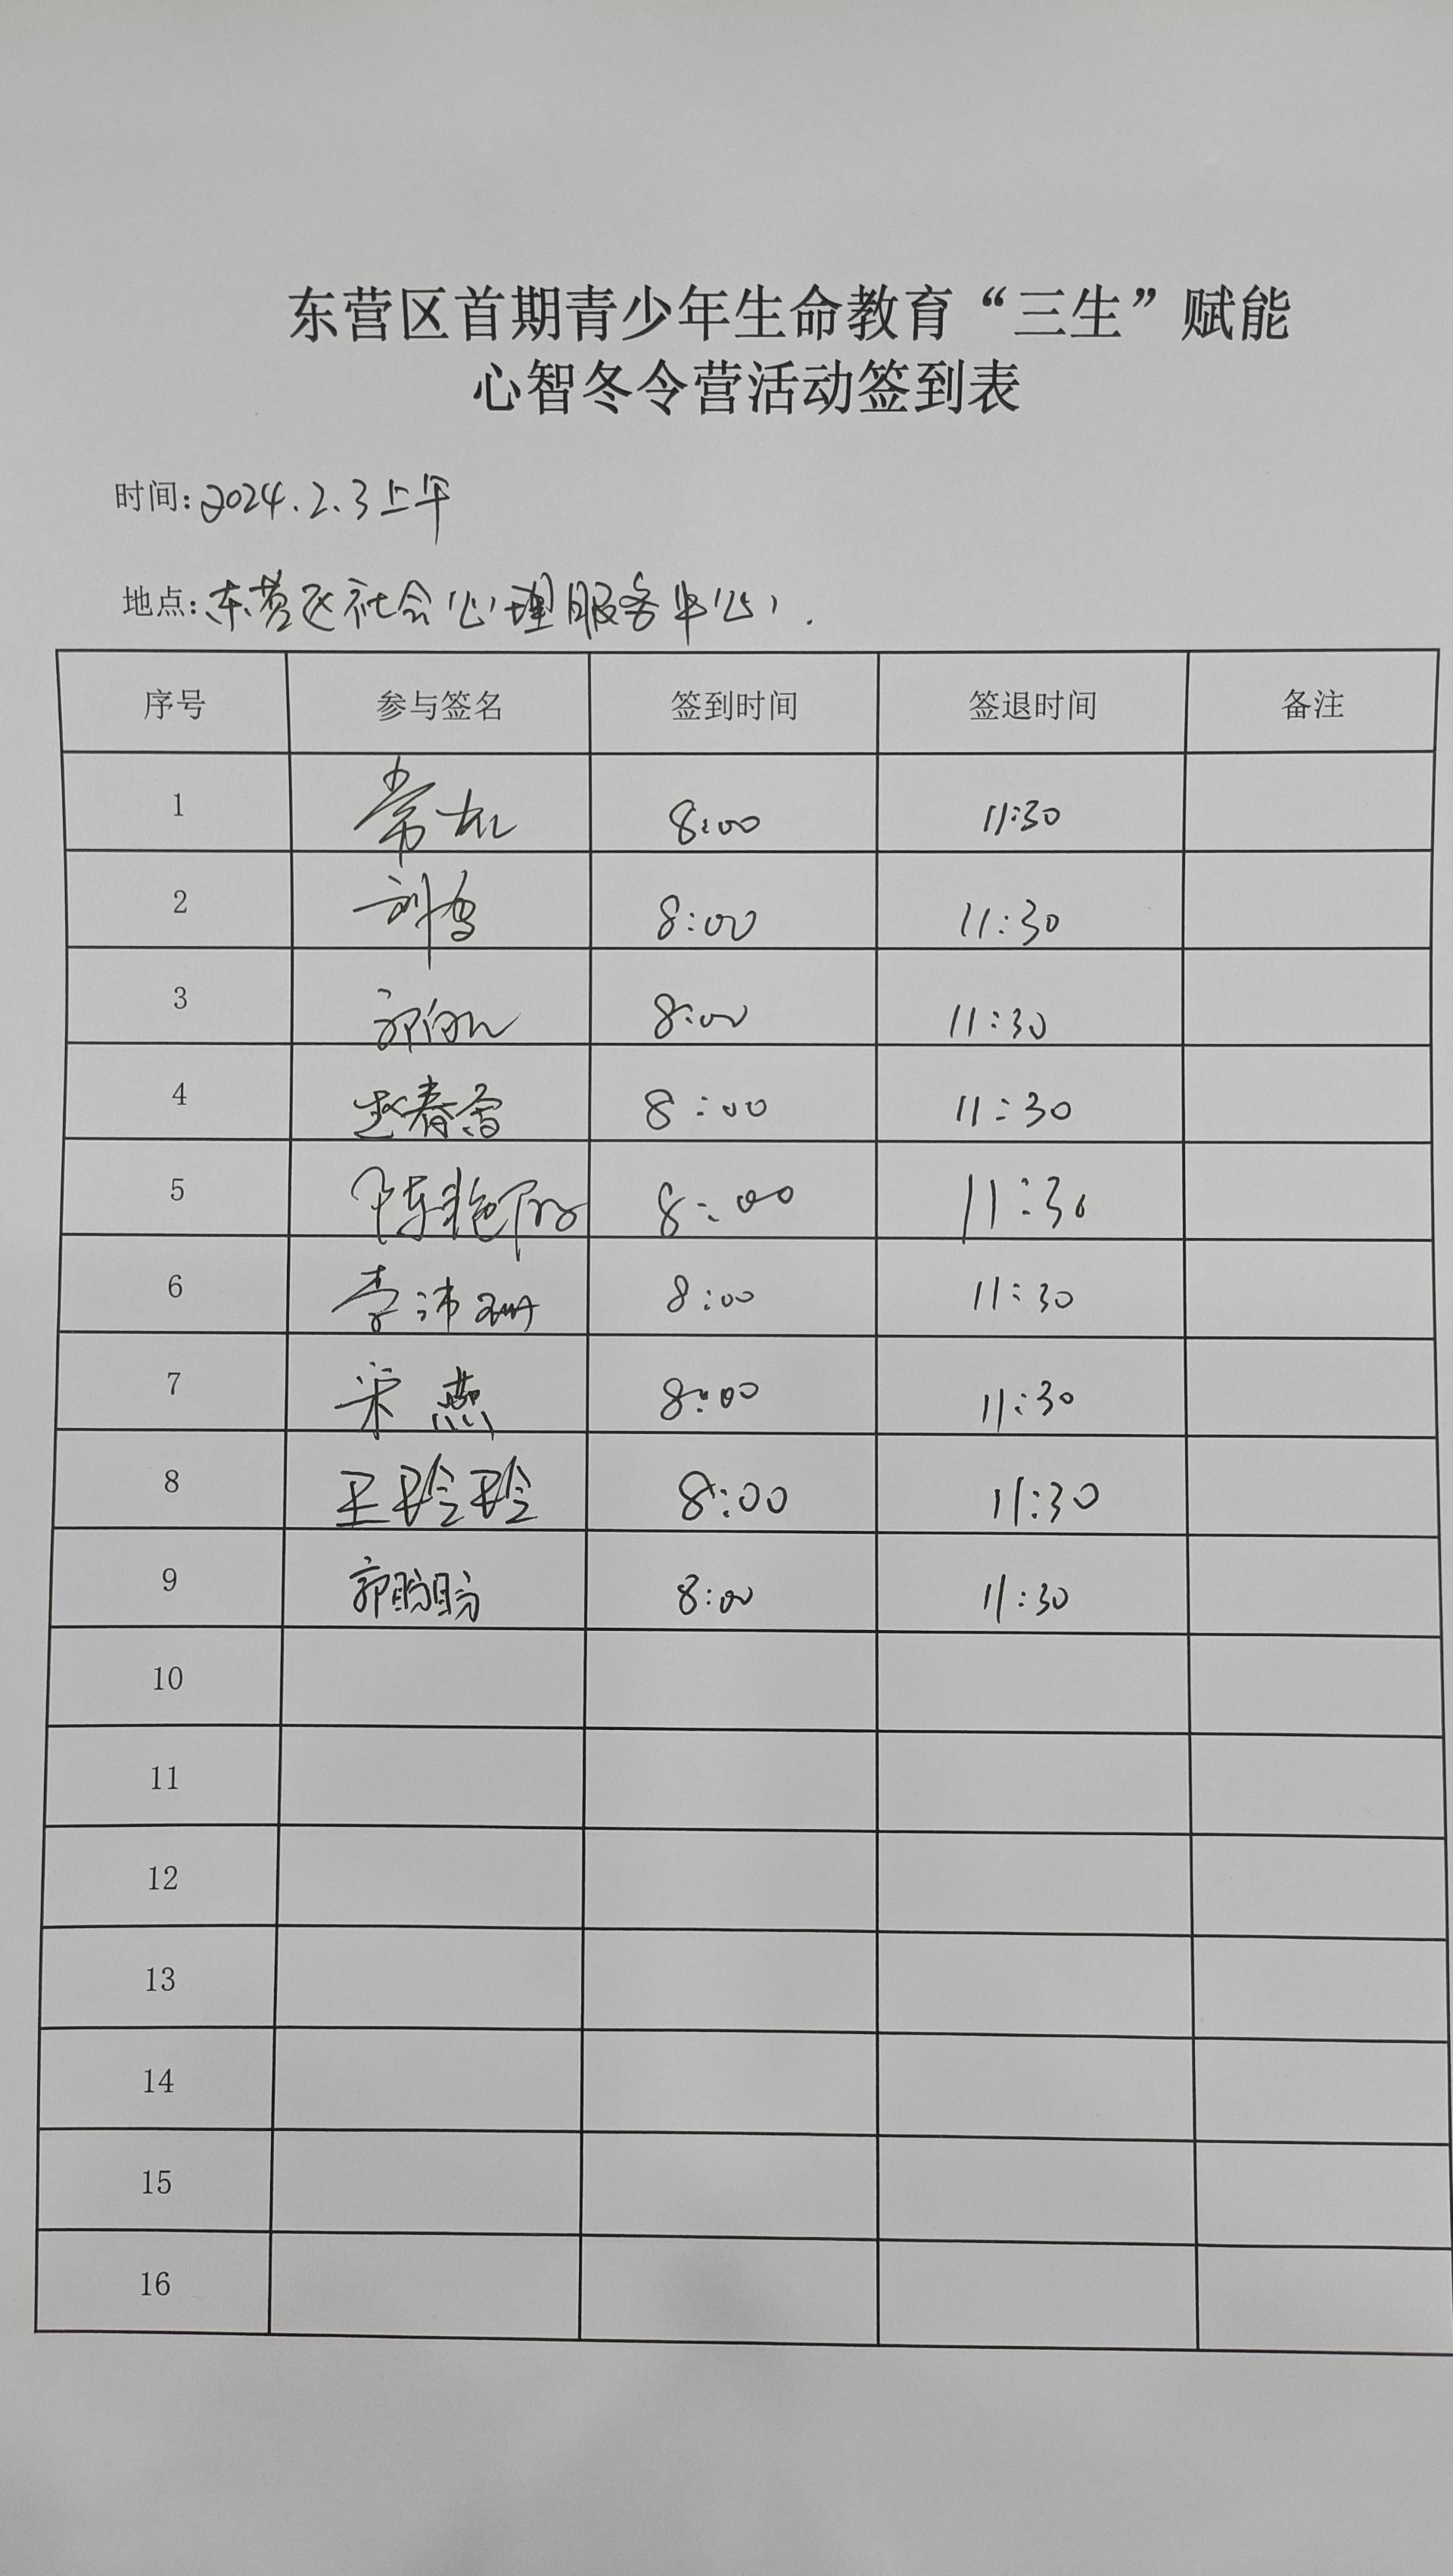 东营区首期青少年生命教育“三生”赋能
心智冬令营活动签到表
时间: 2024.2.3上午
地点: 东营区社会心理服务中心.
序号 参与签名 签到时间 签退时间 备注
1 常 8:00 11:30
2 刘 8:00 11:30
3 郭 8:00 11:30
4 赵春雷 8:00 11:30
5 陈艳丽 8:00 11:30
6 李沛珊 8:00 11:30
7 宋燕 8:00 11:30
8 王玲玲 8:00 11:30
9 郭盼盼 8:00 11:30
10
11
12
13
14
15
16